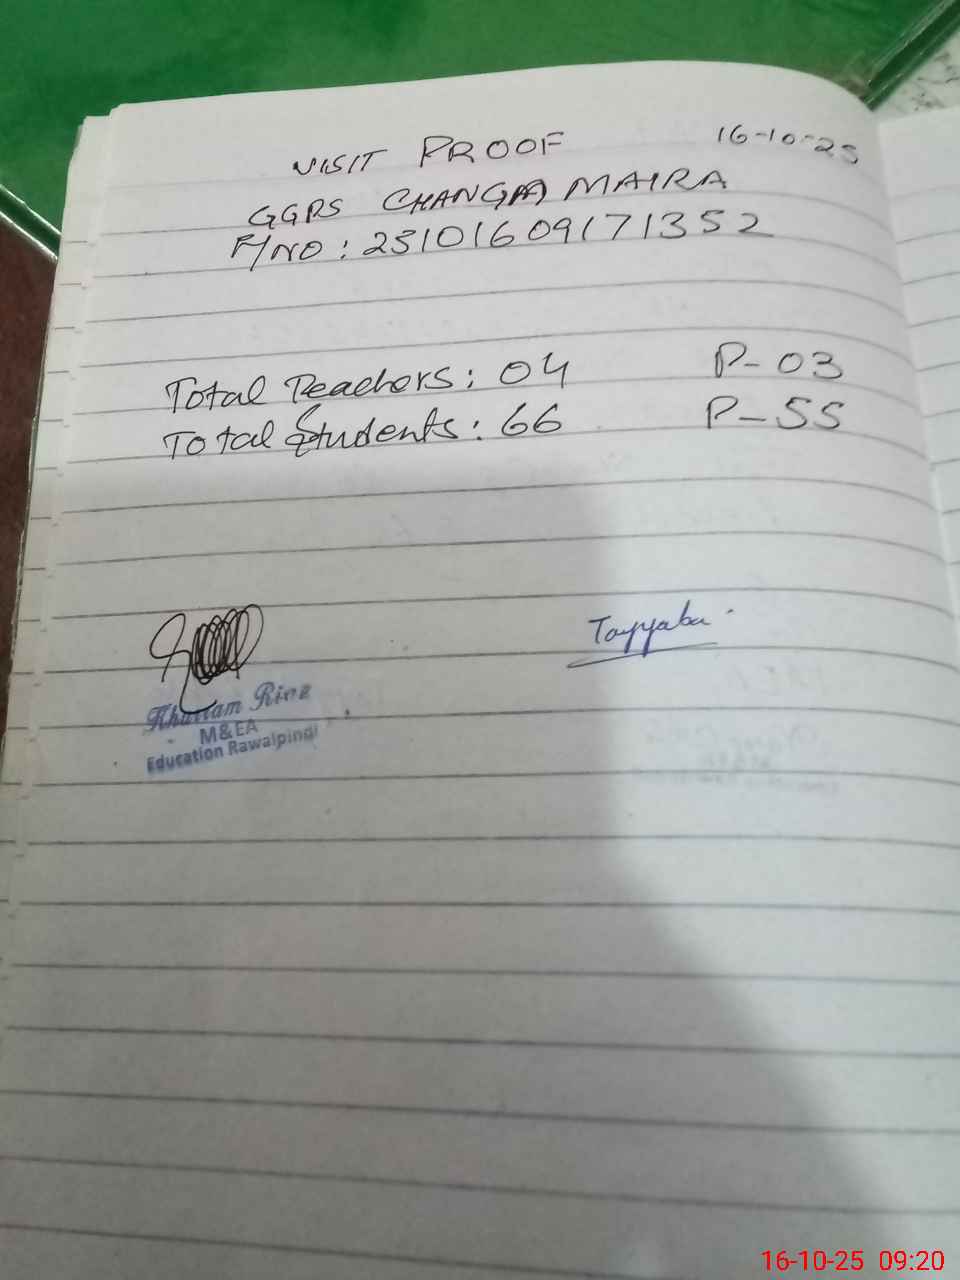 VISIT PROOF 16-10-25
GGPS CHANGA MAIRA
F/NO: 25101609171352
Total Teachers: 04 P-03
Total Students: 66 P-55
Tayyaba
Khurram Riaz
M&EA
Education Rawalpindi
16-10-25 09:20